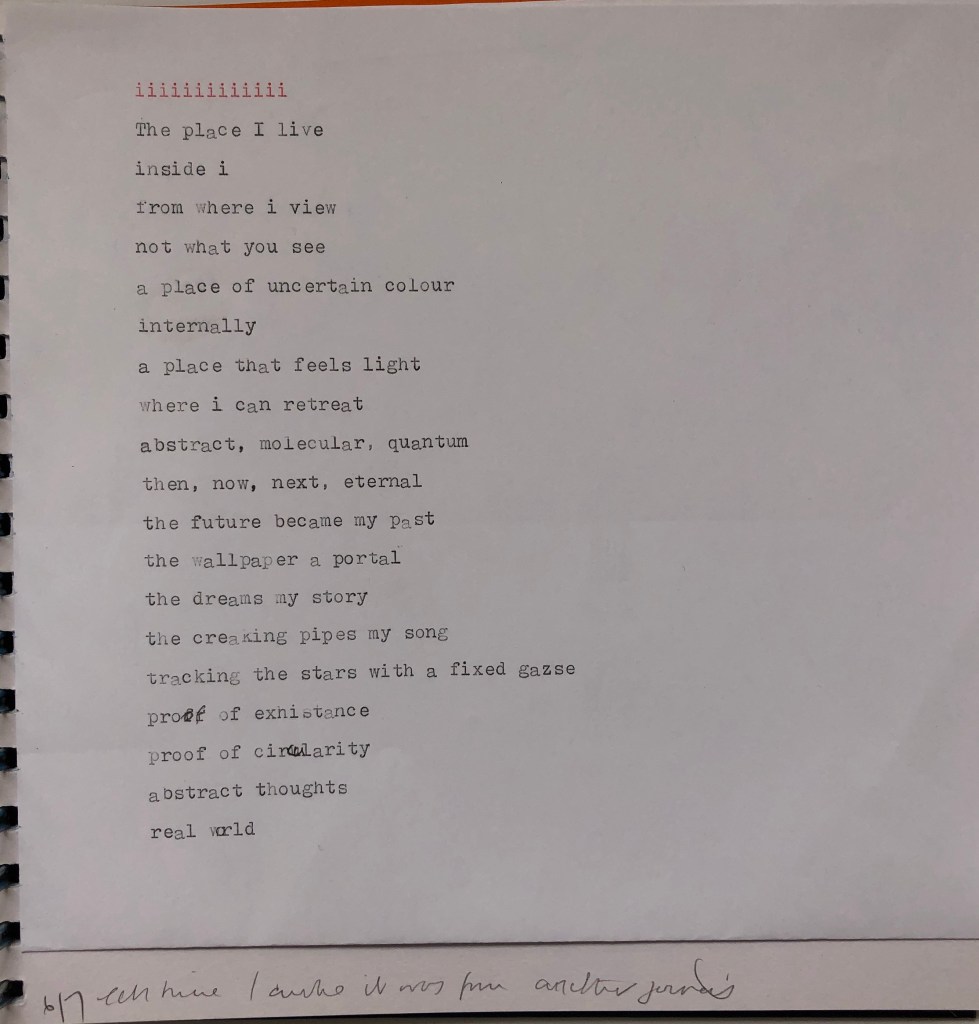 iiiiiiiiiiiii
The place I live
inside i
from where i view
not what you see
a place of uncertain colour
internally
a place that feels light
where i can retreat
abstract, molecular, quantum
then, now, next, eternal
the future became my past
the wallpaper a portal
the dreams my story
the creaking pipes my song
tracking the stars with a fixed gazse
proof of exhistance
proof of circularity
abstract thoughts
real world
6/7 time I it was from another